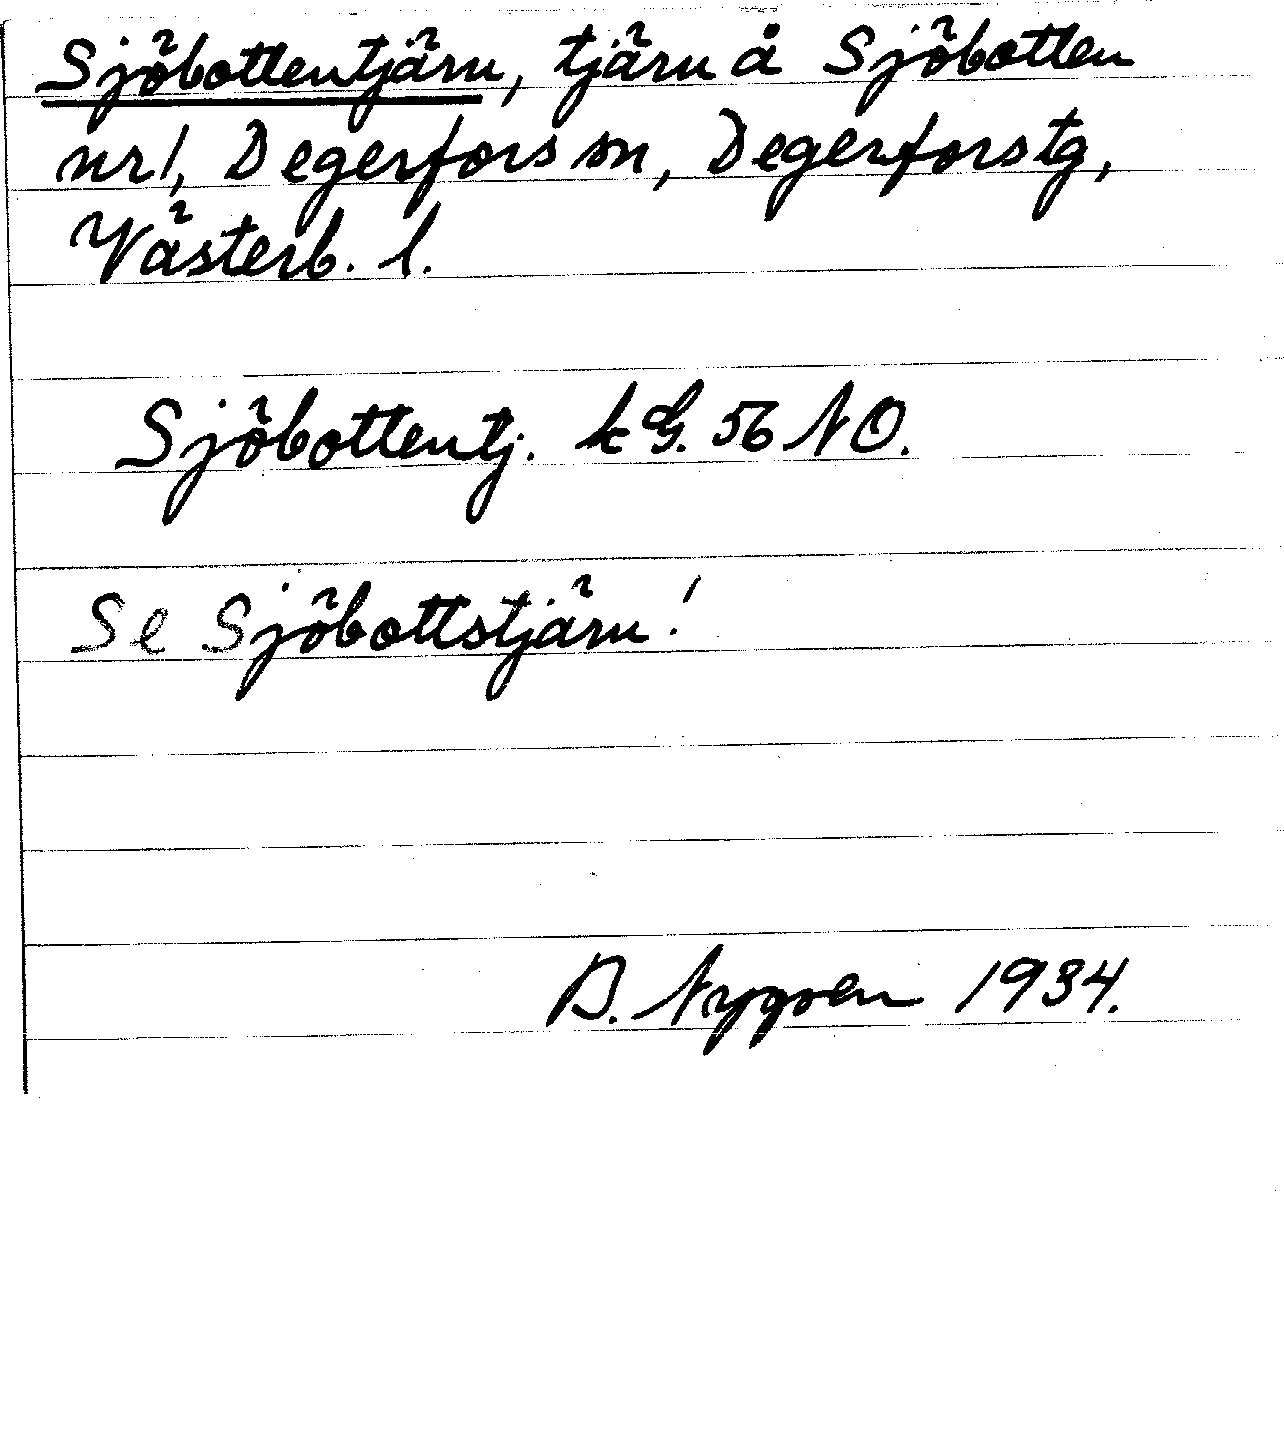 Sjöbottentjärn, tjärn å Sjöbotten
nr 1, Degerfors sn, Degerfors tg,
Västerb. l.
Sjöbottentj. kG. 56 NO.
Se Sjöbottstjärn!
B. Nygren 1934.